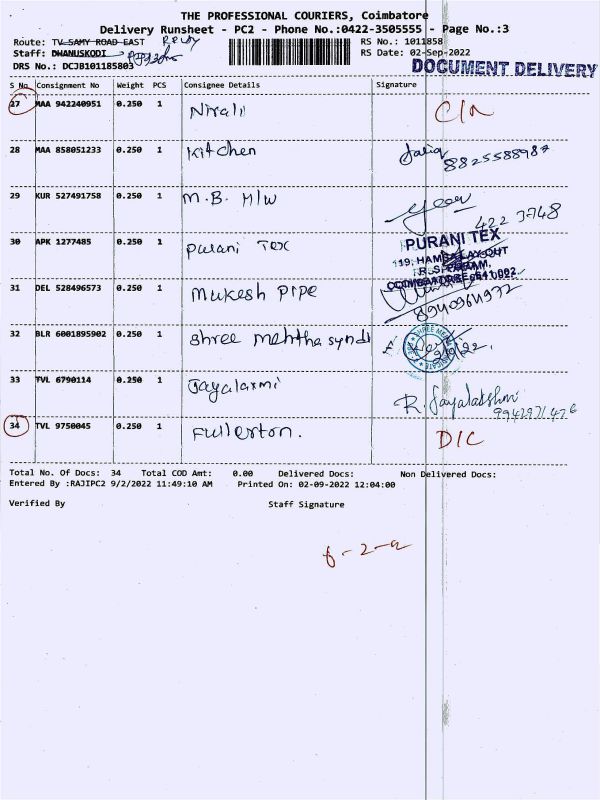 THE PROFESSIONAL COURIERS, Coimbatore
Delivery Runsheet - PC2 - Phone No.:0422-3505555 - Page No.:3
Route: TV SAMY ROAD EAST
RS No.: 1011858
Staff: DHANUSKODI
RS Date: 02-Sep-2022
DRS No.: DCJB101185803
DOCUMENT DELIVERY
S No. Consignment No Weight PCS Consignee Details Signature
27 MAA 942240951 0.250 1 Nirali
28 MAA 858051233 0.250 1 Kitchen 8825588987
29 KUR 527491758 0.250 1 M.B. H/W
422 3748
30 APK 1277485 0.250 1 Purani Tex
PURANI TEX
31 DEL 528496573 0.250 1 Mukesh Pipe
32 BLR 6001895902 0.250 1 Shree Mehtha Syndi
33 TVL 6790114 0.250 1 Jayalaxmi R. Jayalakshmi
34 TVL 9750045 0.250 1 Fullerton. D/C
Total No. Of Docs: 34 Total COD Amt: 0.00 Delivered Docs: Non Delivered Docs:
Entered By :RAJIPC2 9/2/2022 11:49:10 AM Printed On: 02-09-2022 12:04:00
Verified By Staff Signature